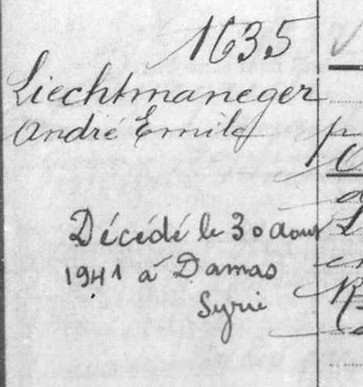 1635
Liechtmaneger
André Emile
Décédé le 30 Aout
1941 à Damas
Syrie